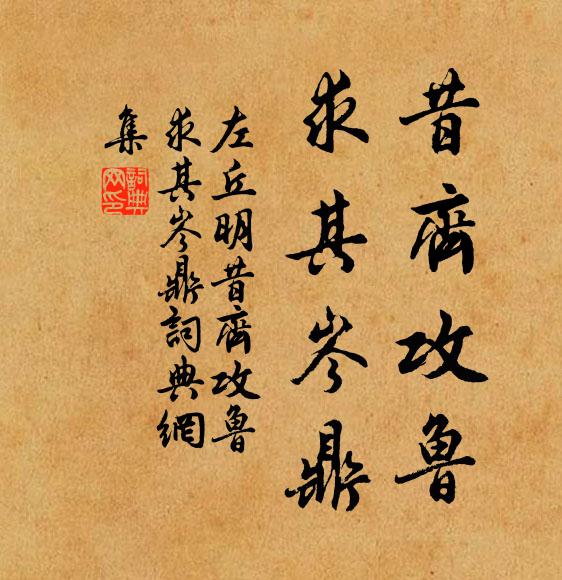 昔齊攻魯
求其岑鼎
左丘明昔齊攻魯
求其岑鼎詞典網
集
詞典
网印